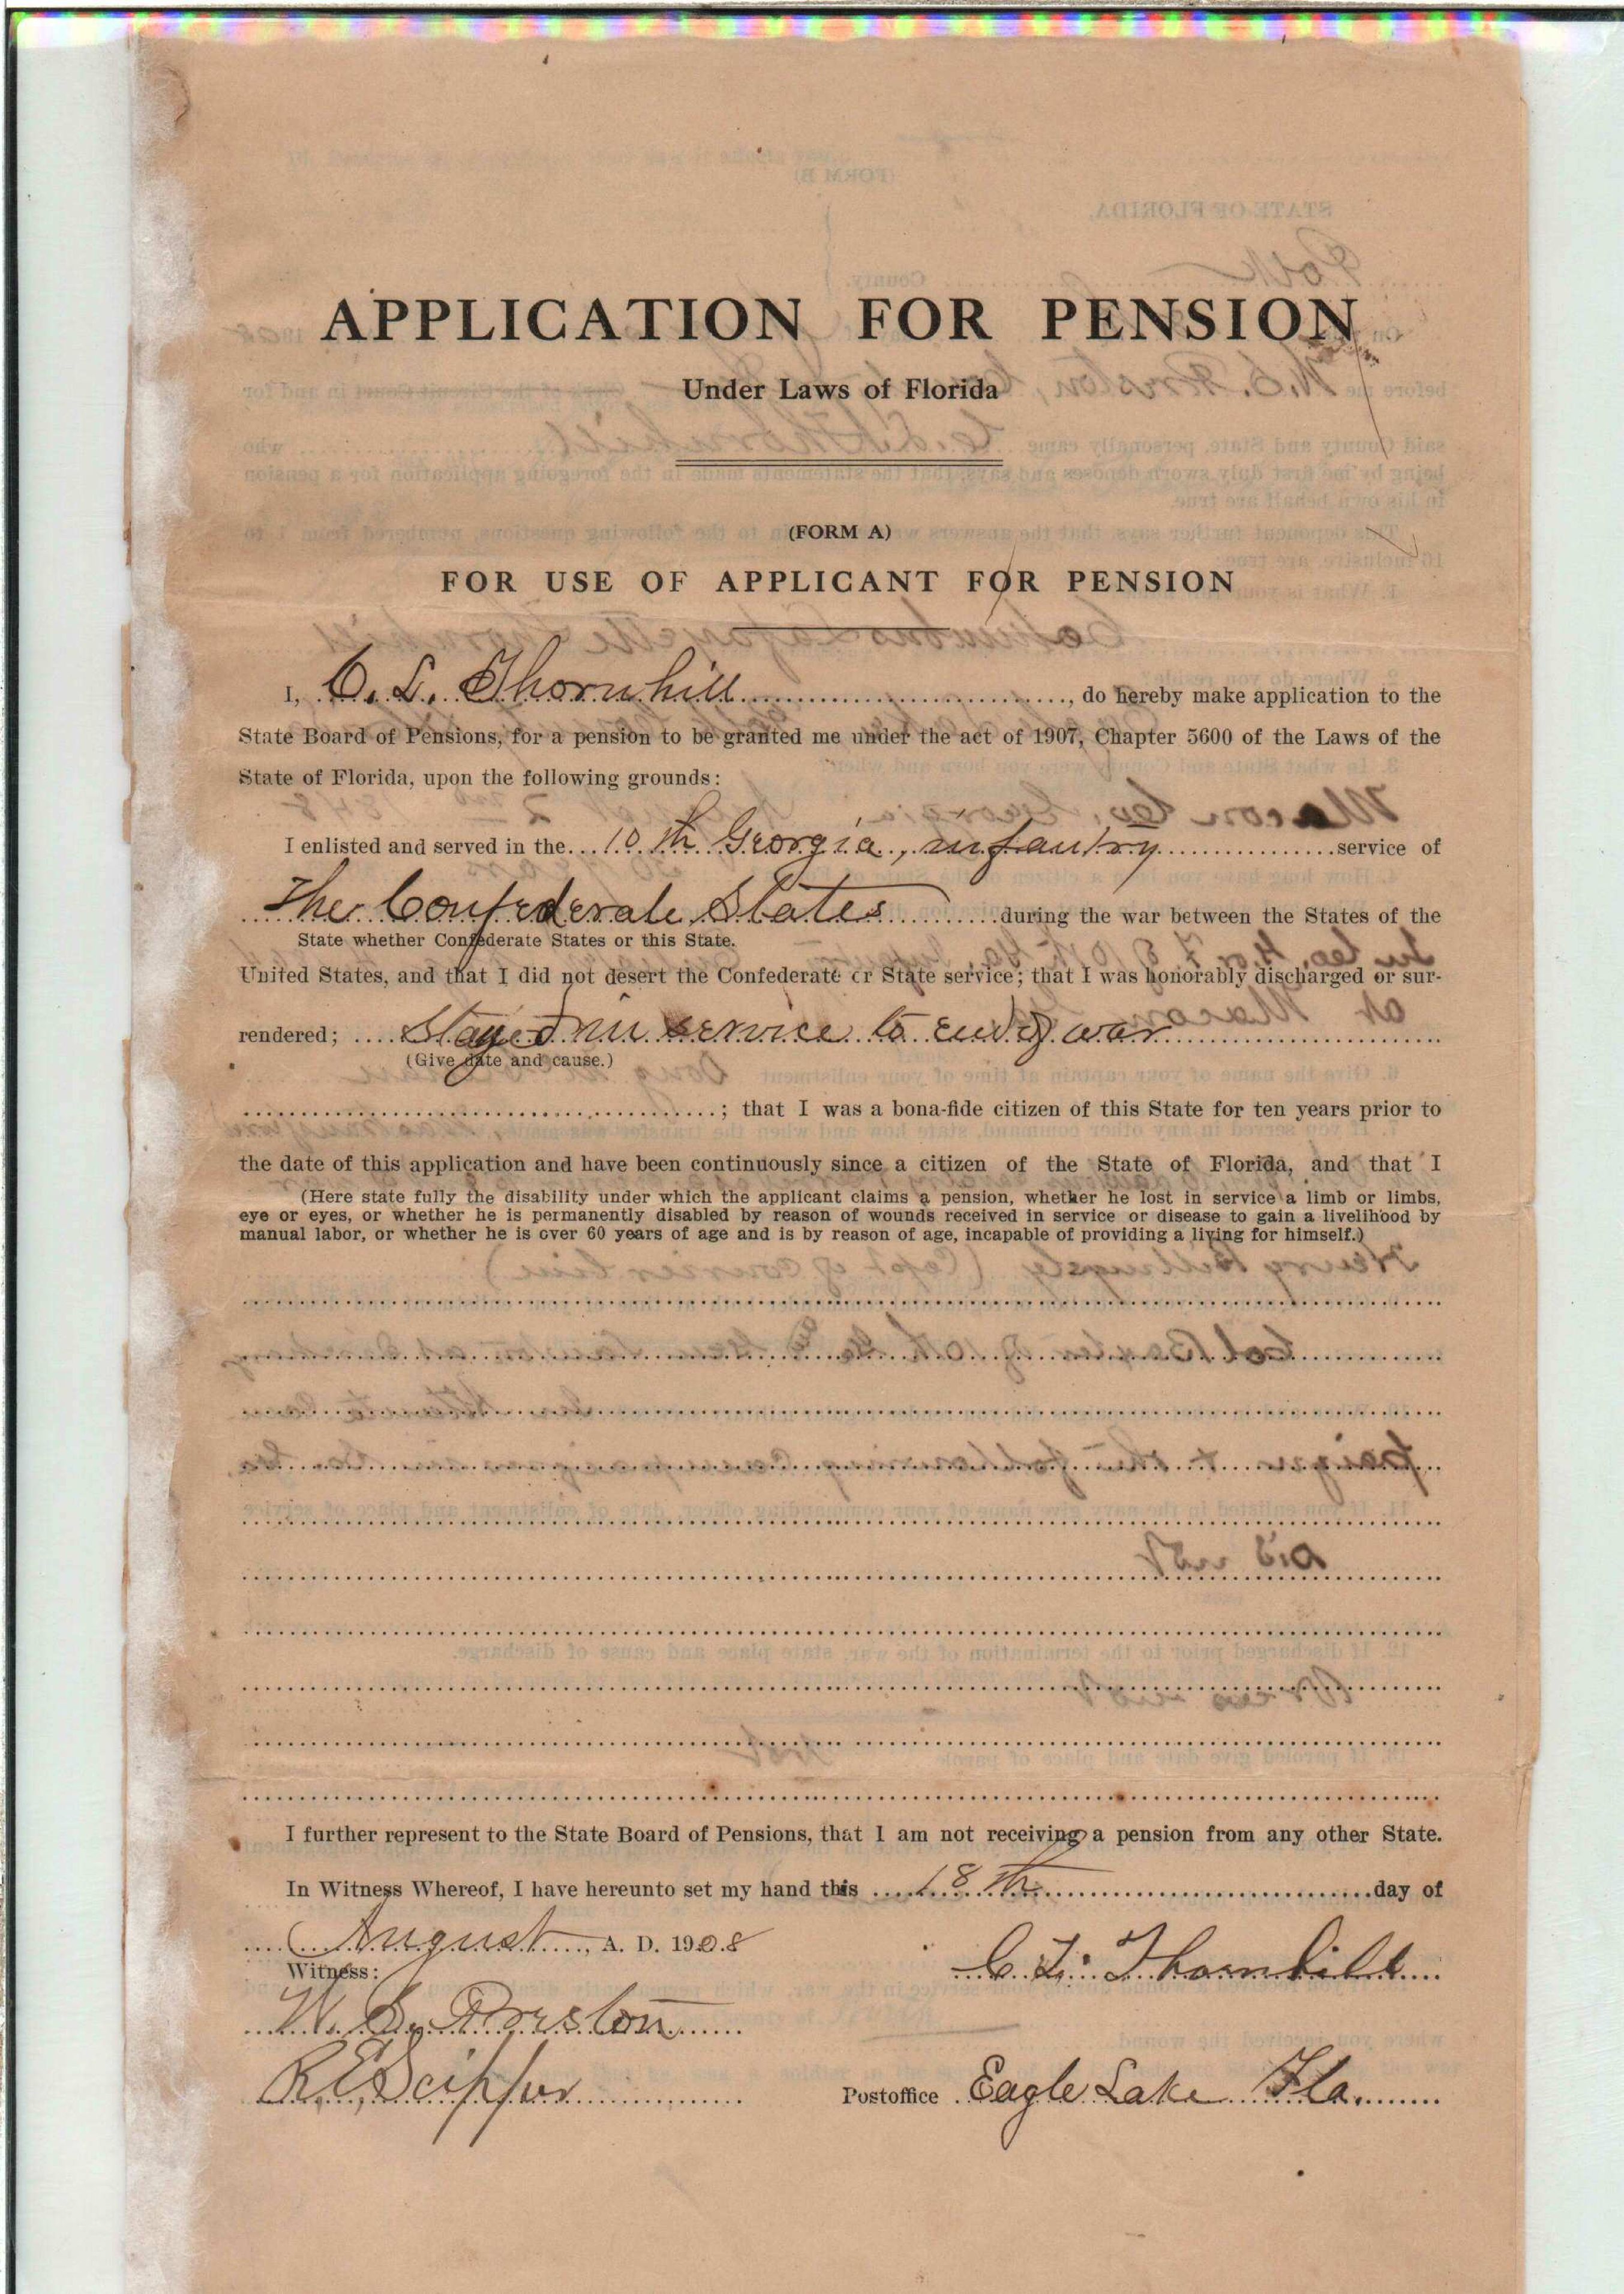 APPLICATION FOR PENSION
Under Laws of Florida
(FORM A)
FOR USE OF APPLICANT FOR PENSION
I, C. L. Thornhill, do hereby make application to the
State Board of Pensions, for a pension to be granted me under the act of 1907, Chapter 5600 of the Laws of the
State of Florida, upon the following grounds:
I enlisted and served in the 10th Georgia, infantry service of
The Confederate States during the war between the States of the
State whether Confederate States or this State.
United States, and that I did not desert the Confederate or State service; that I was honorably discharged or sur-
rendered; Stayed in service to end of war
(Give date and cause.)
; that I was a bona-fide citizen of this State for ten years prior to
the date of this application and have been continuously since a citizen of the State of Florida, and that I
(Here state fully the disability under which the applicant claims a pension, whether he lost in service a limb or limbs,
eye or eyes, or whether he is permanently disabled by reason of wounds received in service or disease to gain a livelihood by
manual labor, or whether he is over 60 years of age and is by reason of age, incapable of providing a living for himself.)
I further represent to the State Board of Pensions, that I am not receiving a pension from any other State.
In Witness Whereof, I have hereunto set my hand this 18th day of
August, A. D. 1908
C. L. Thornhill
Witness:
W. S. Preston
Postoffice Eagle Lake Fla.